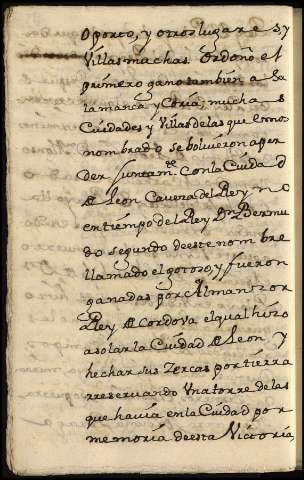 Oporto, y otros lugares y
Villas muchas. Ordoño el
primero gano tambien a Sa
lamanca y Coria; muchas
Ciudades y Villas de las que hemos
nombrado se bolvieron a per
der Juntamte. Con la Ciudad
de Leon Cavera del Reyno
en tiempo del Rey Dn. Bermu
do segundo de este nombre
llamado el gotoso, y fueron
ganadas por Almanzor
Rey de Cordova el qual hizo
asolar la Ciudad de Leon y
hechar sus Zercas por tierra
rreservando Una torre de las
que havia en la Ciudad por
memoria de esta Victoria,